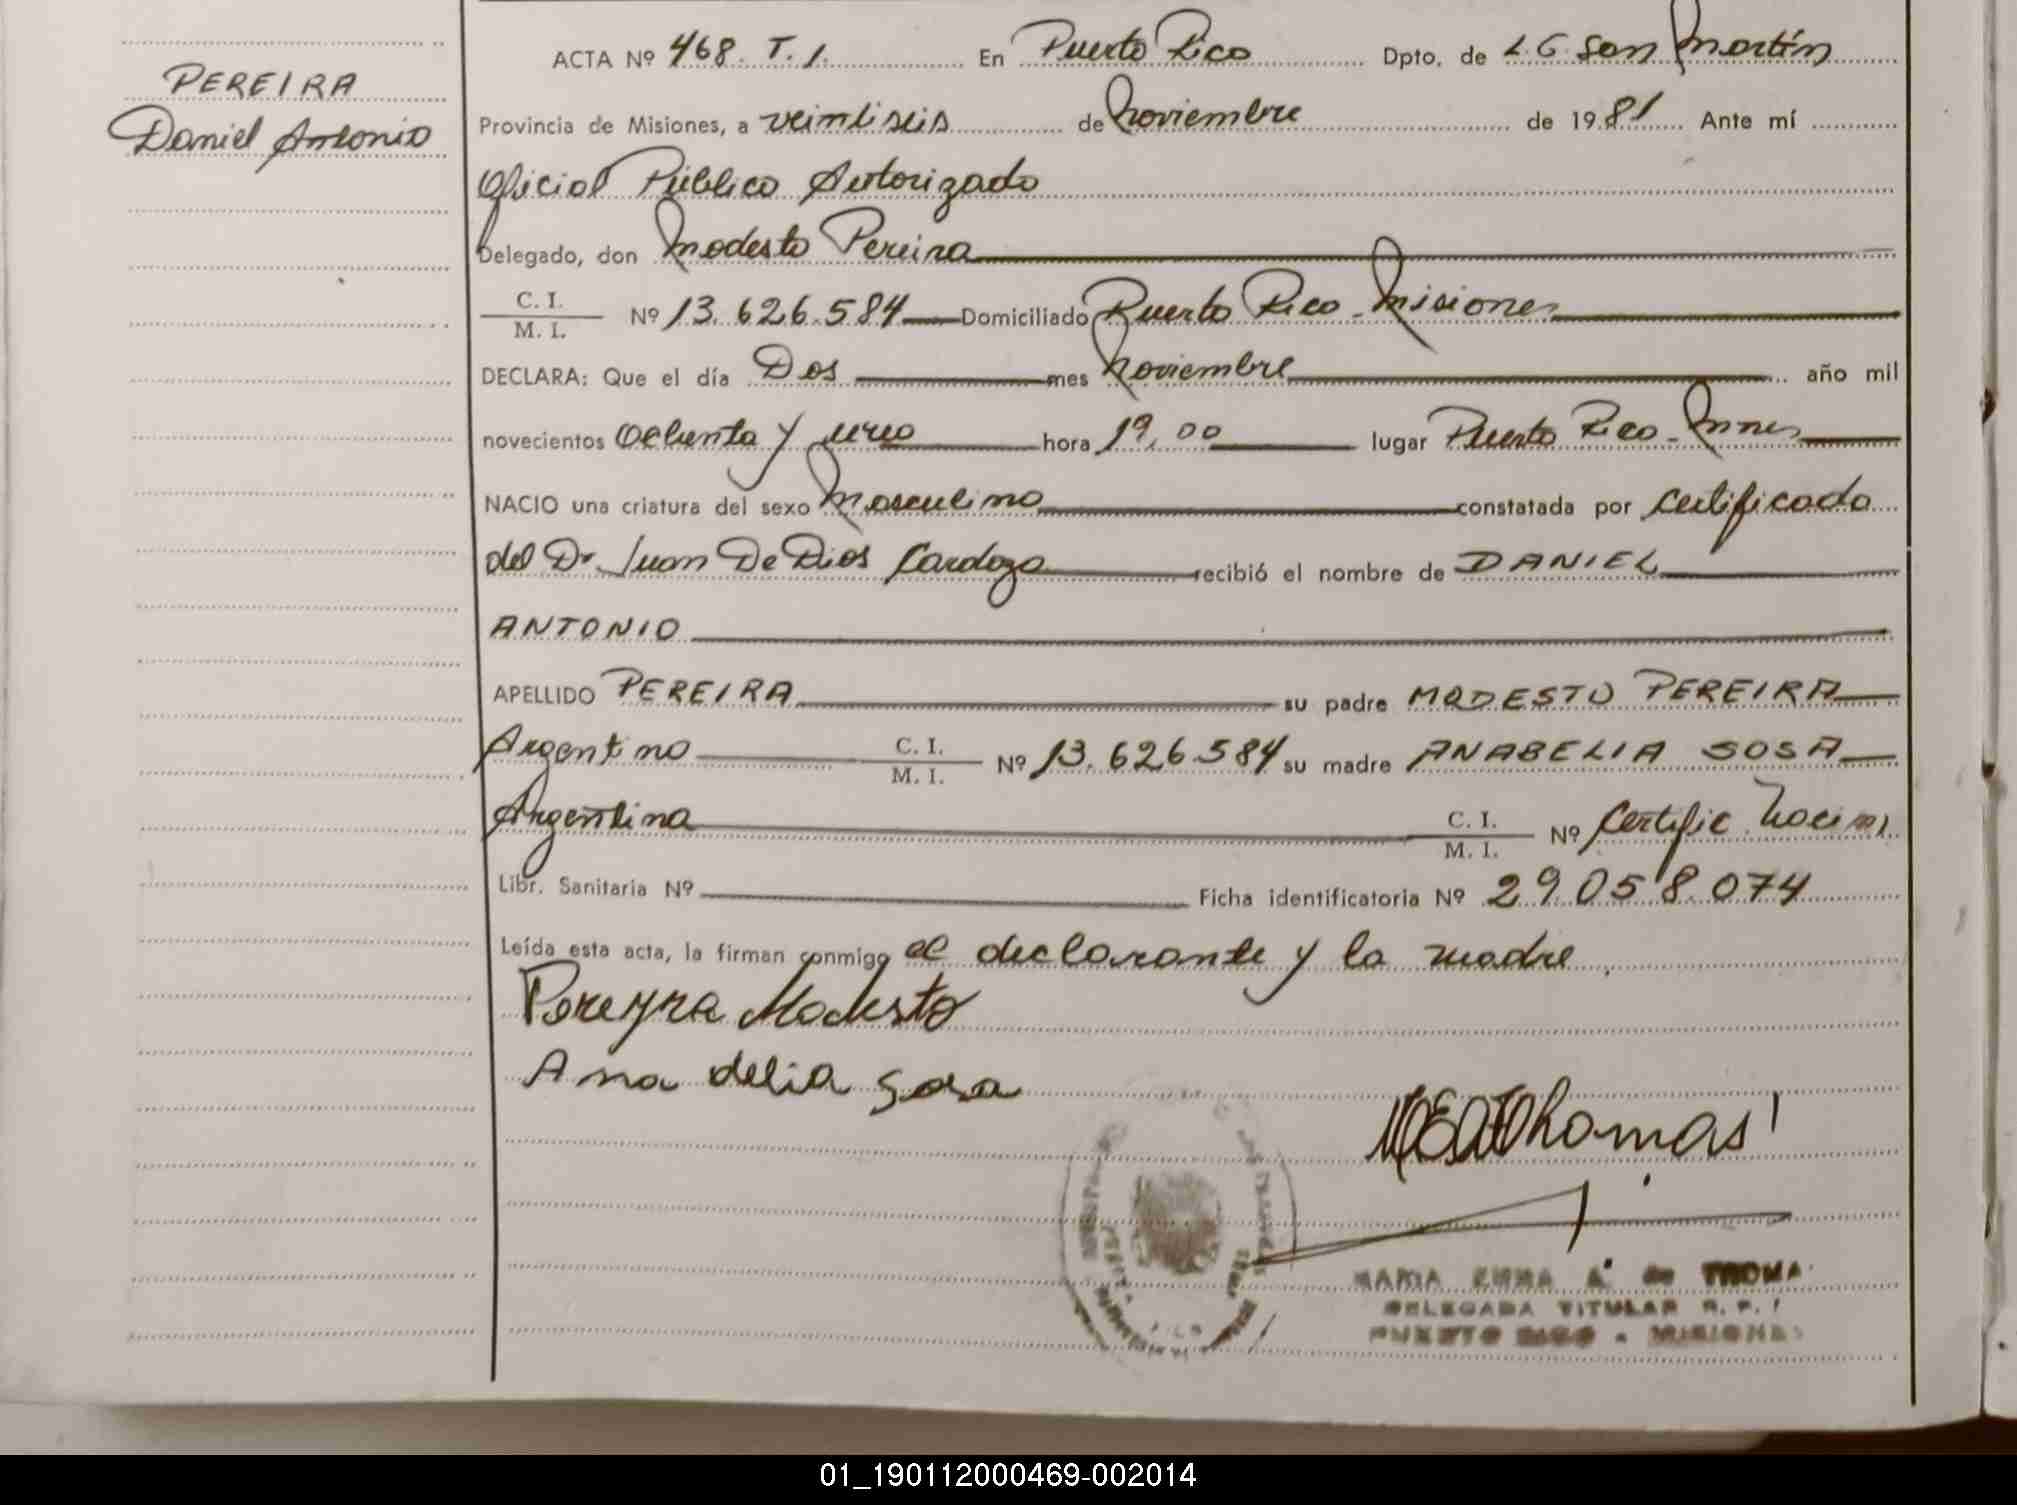 PEREIRA
Daniel Antonio
ACTA Nº 468. T. 1. En Puerto Rico Dpto. de L.G. San Martín
Provincia de Misiones, a veintiseis de Noviembre de 1981 Ante mí
Oficial Público Autorizado
Delegado, don Modesto Pereira
C. I.
M. I.
Nº 13.626.584 Domiciliado Puerto Rico - Misiones
DECLARA: Que el día Dos mes Noviembre año mil
novecientos ochenta y uno hora 19,00 lugar Puerto Rico - Mnes
NACIO una criatura del sexo Masculino constatada por certificado
del Dr. Juan De Dios Cardozo recibió el nombre de DANIEL
ANTONIO
APELLIDO PEREIRA su padre MODESTO PEREIRA
Argentino C. I.
M. I.
Nº 13.626.584 su madre ANABELIA SOSA
Argentina C. I.
M. I.
Nº Certific. Nacim
Libr. Sanitaria Nº Ficha identificatoria Nº 29.058.074
Leída esta acta, la firman conmigo el declarante y la madre.
Pereyra Modesto
Ana delia Sosa
MARIA EMMA A. de THOMA
DELEGADA TITULAR R. P.
PUERTO RICO - MISIONES
01_190112000469-002014